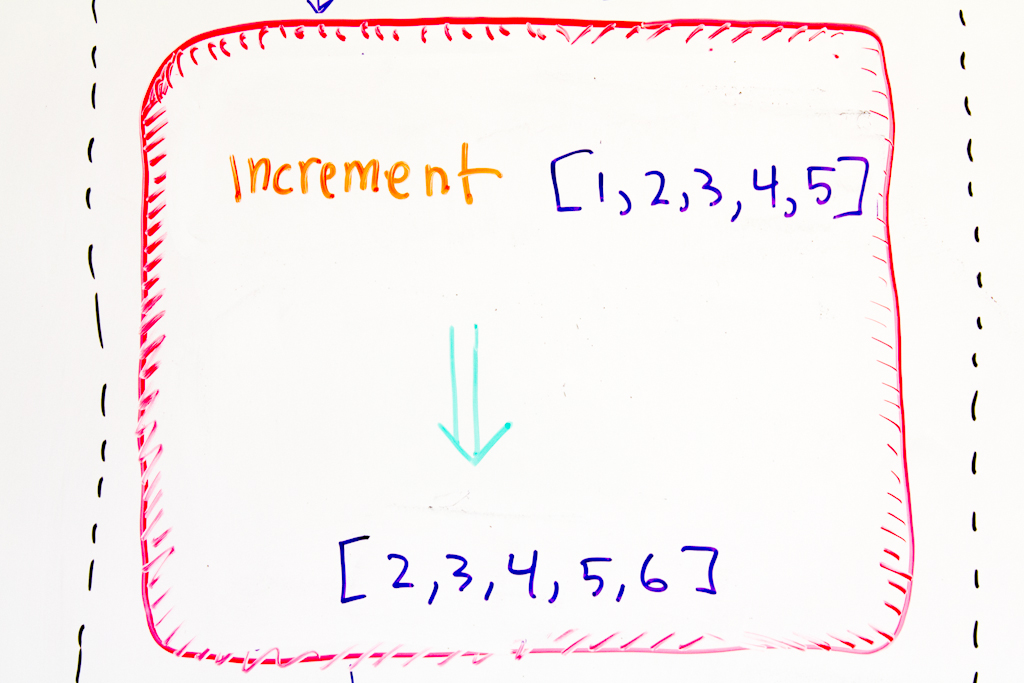 Increment [1,2,3,4,5]
[2,3,4,5,6]